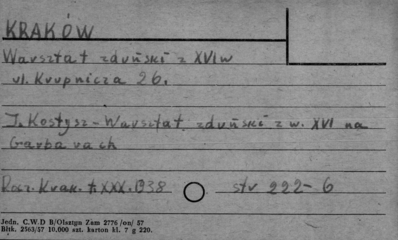 KRAKÓW
Warsztat zduński z XVI w
ul. Krupnicza 26.
J. Kostysz - Warsztat zduński z w. XVI na
Garbarach
Rocz. Krak. t. XXX. 938 str 222-6
Jedn. C.W.D B/Olsztyn Zam 2776 /on/ 57
Bltk. 2563/57 10.000 szt. karton kl. 7 g 220.